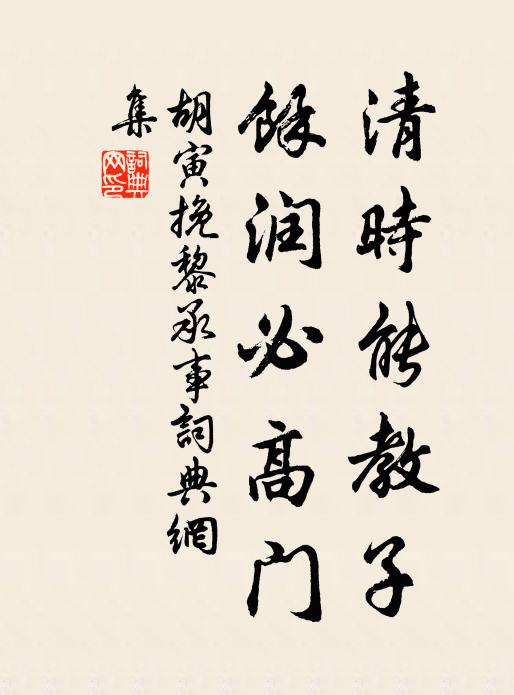 清時能教子
餘润必高门
胡寅挽黎承事詞典網
集
詞典网印